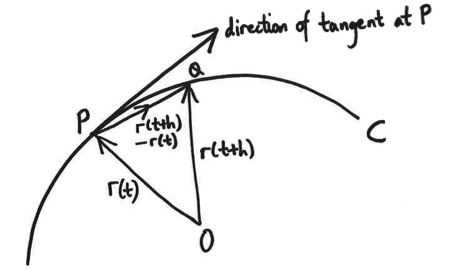 direction of tangent at P
Q
P
r(t+h)
-r(t)
r(t+h)
C
r(t)
O